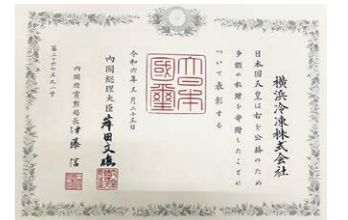 横浜冷凍株式会社
日本国天皇は右を公益のため
多額の私財を寄附したことに
ついて表彰する
大日本
國璽
令和六年
内閣総理大臣 岸田文雄
内閣府賞勲局長 伊藤信